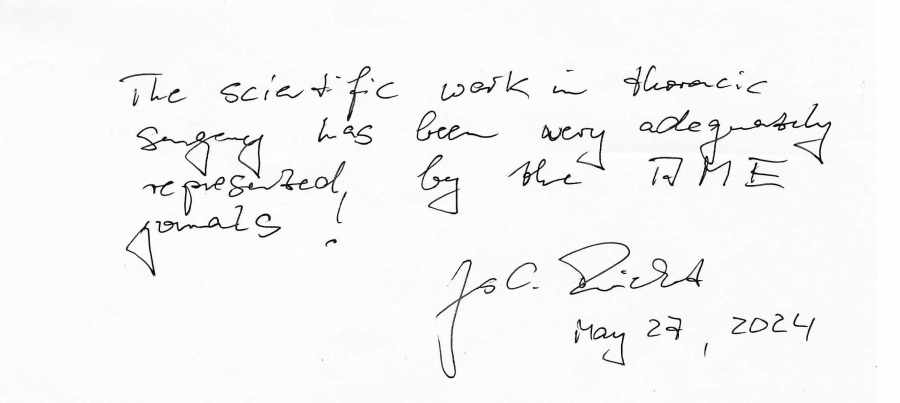 The scientific work in thoracic
surgery has been very adequately
represented, by the AME
jornals !
C.
May 27, 2024